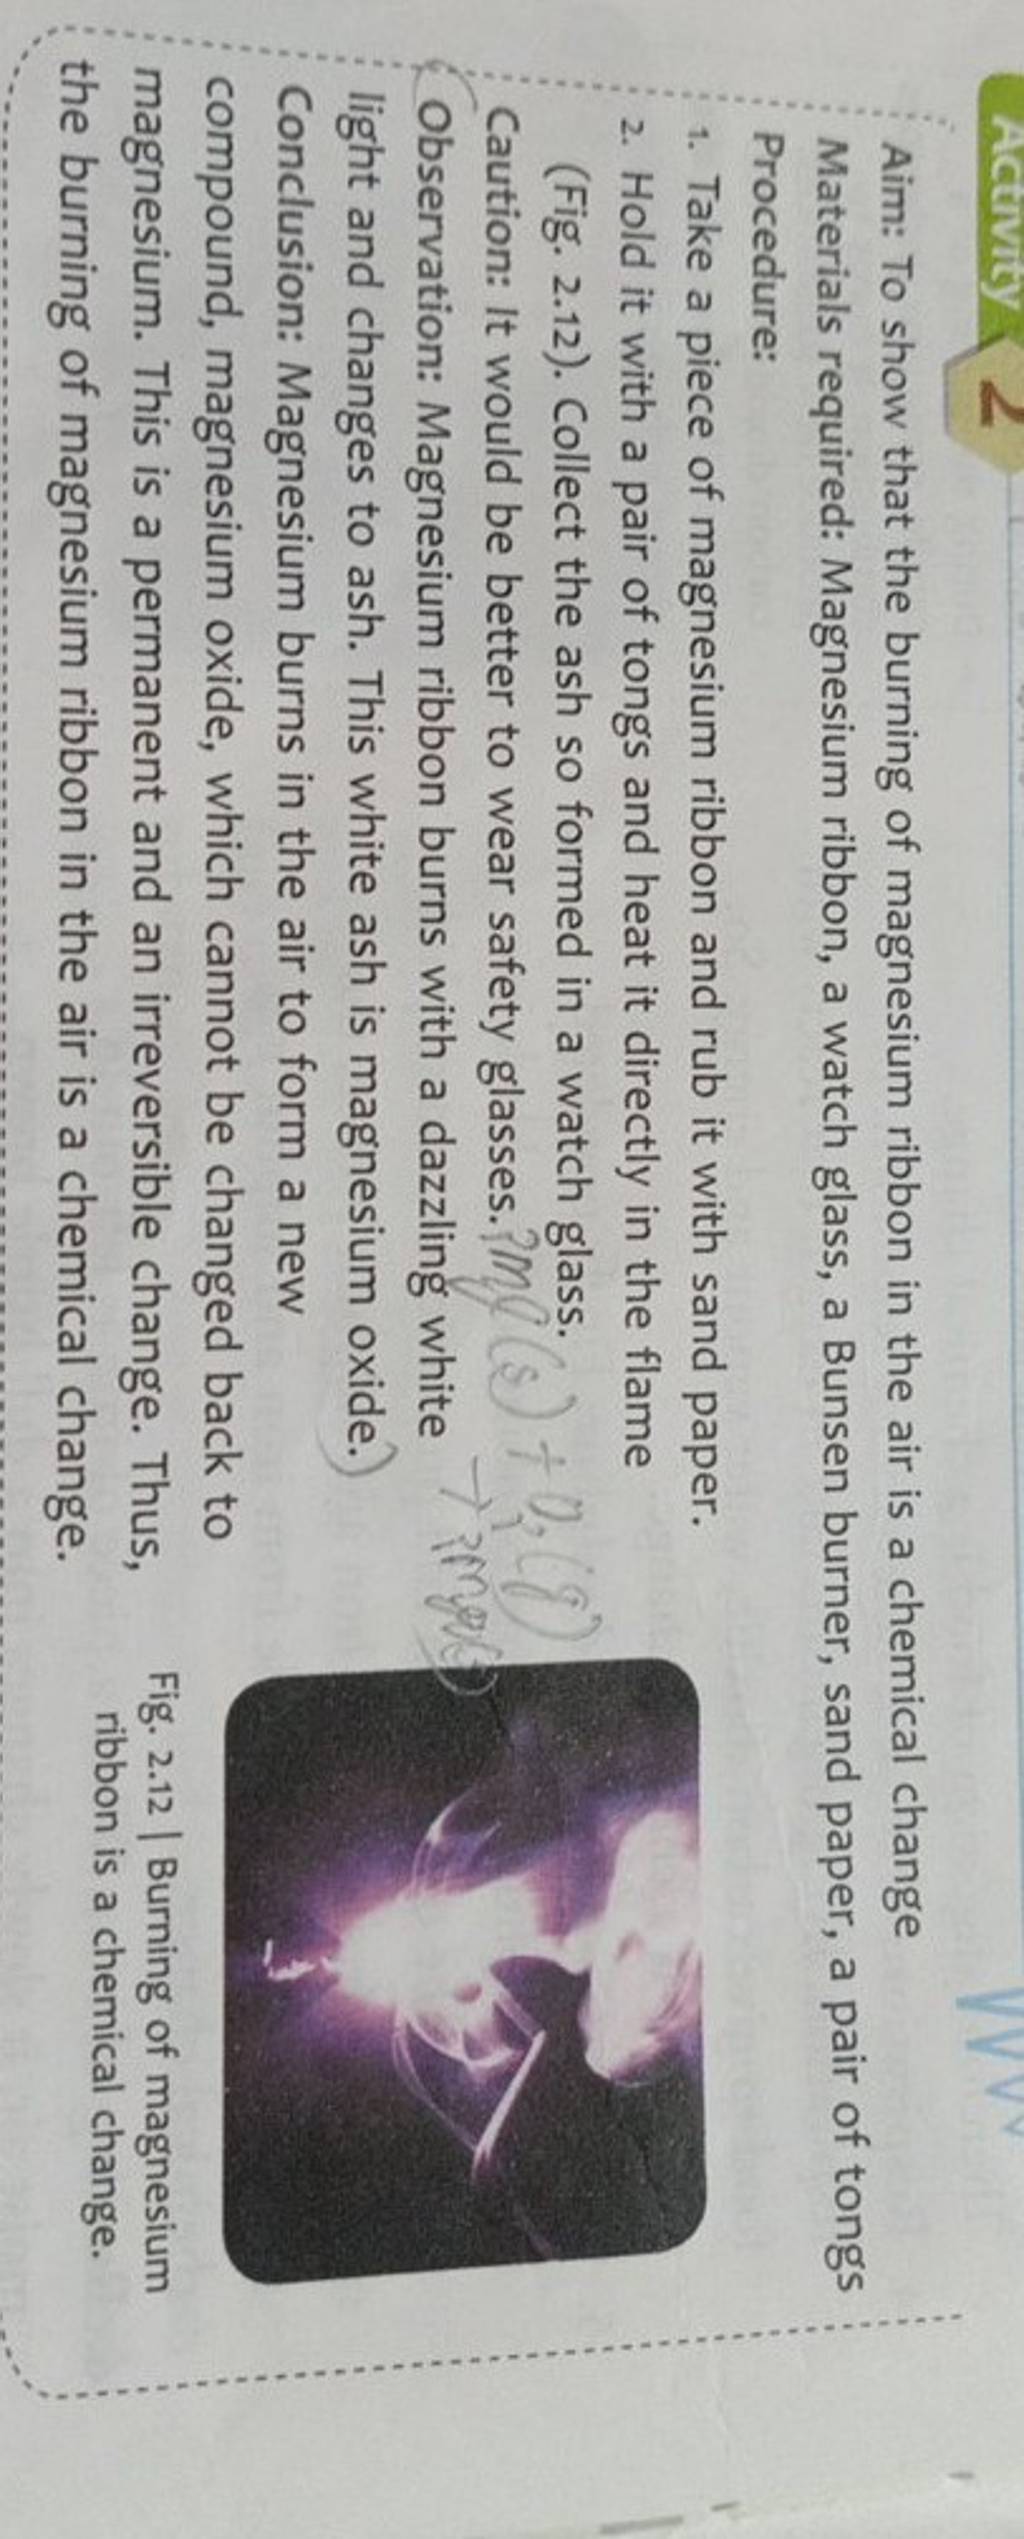 Activity 2
Aim: To show that the burning of magnesium ribbon in the air is a chemical change
Materials required: Magnesium ribbon, a watch glass, a Bunsen burner, sand paper, a pair of tongs
Procedure:
1. Take a piece of magnesium ribbon and rub it with sand paper.
2. Hold it with a pair of tongs and heat it directly in the flame
(Fig. 2.12). Collect the ash so formed in a watch glass.
Caution: It would be better to wear safety glasses.
Observation: Magnesium ribbon burns with a dazzling white
light and changes to ash. This white ash is magnesium oxide.)
Conclusion: Magnesium burns in the air to form a new
compound, magnesium oxide, which cannot be changed back to
magnesium. This is a permanent and an irreversible change. Thus,
the burning of magnesium ribbon in the air is a chemical change.
Fig. 2.12 | Burning of magnesium
ribbon is a chemical change.